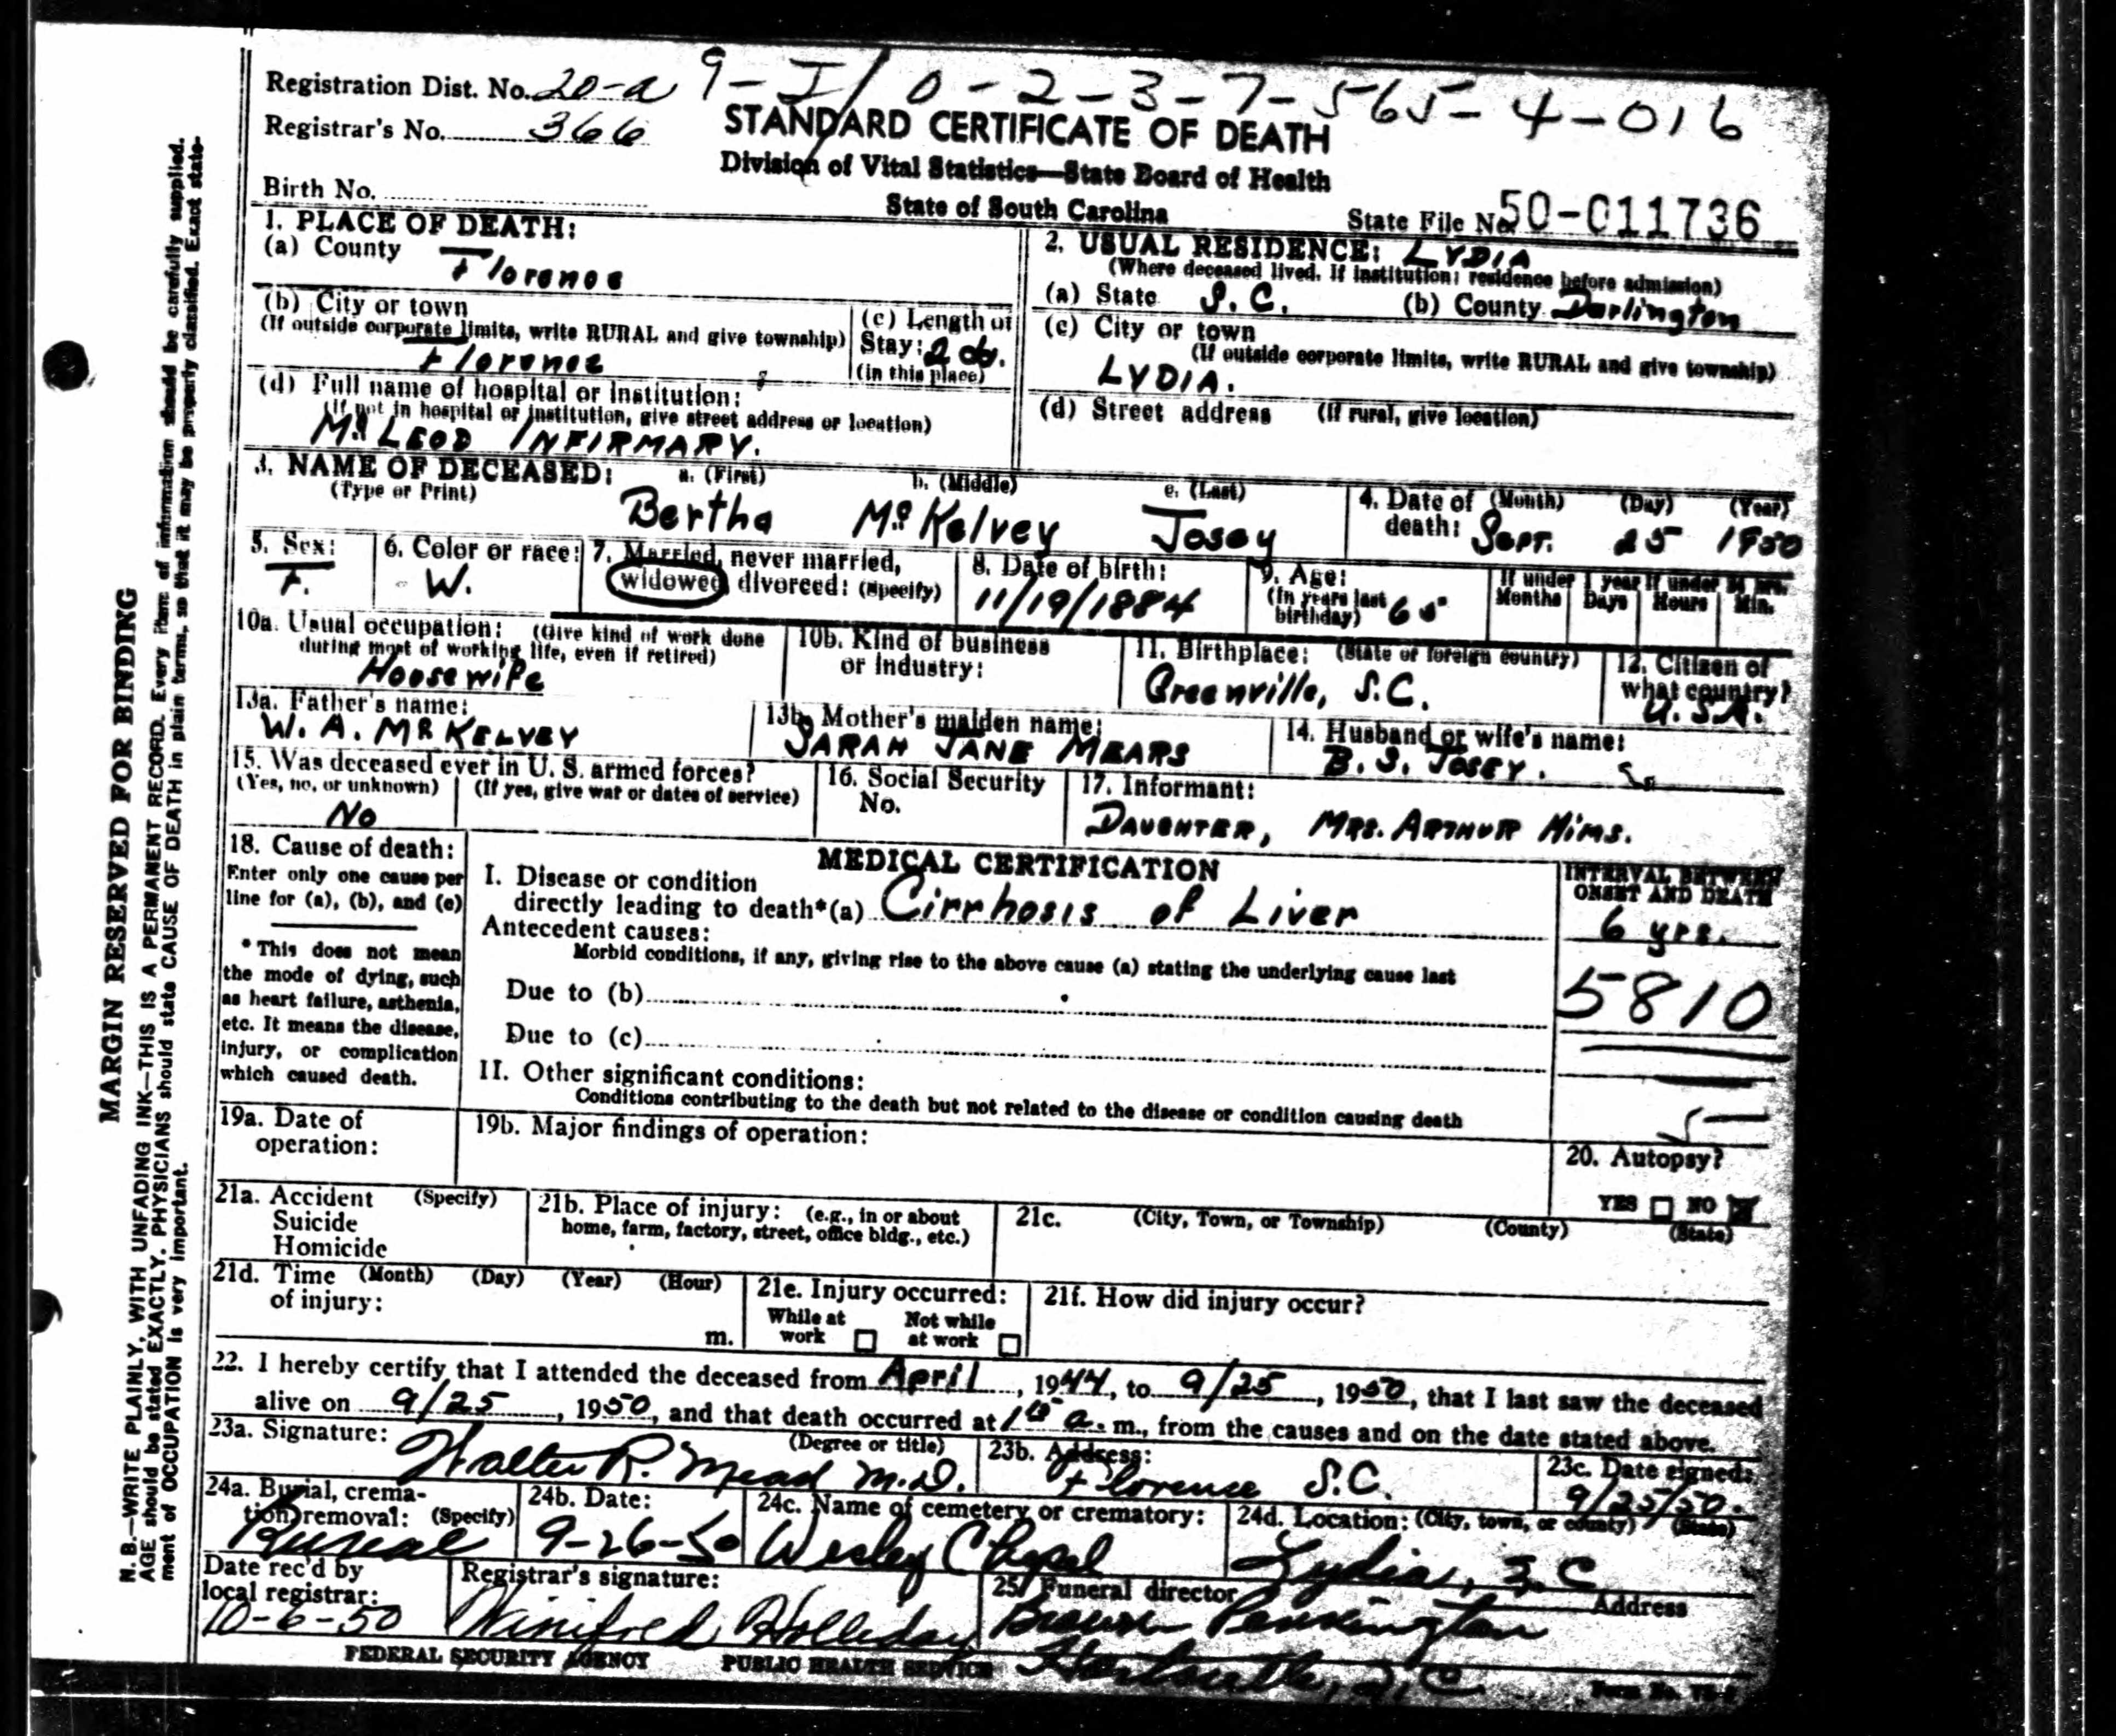 Registration Dist. No. 20-a 9-I/0-2-3-7-565-4-016
Registrar's No. 366
STANDARD CERTIFICATE OF DEATH
Division of Vital Statistics—State Board of Health
State of South Carolina
Birth No.
State File No. 50-011736
1. PLACE OF DEATH:
(a) County Florence
(b) City or town
(If outside corporate limits, write RURAL and give township)
Florence
(c) Length of
Stay: 2 da.
(in this place)
(d) Full name of hospital or institution:
(If not in hospital or institution, give street address or location)
McLEOD INFIRMARY.
2. USUAL RESIDENCE: LYDIA
(Where deceased lived. If institution: residence before admission)
(a) State S.C. (b) County Darlington
(c) City or town
(If outside corporate limits, write RURAL and give township)
LYDIA.
(d) Street address (If rural, give location)
3. NAME OF DECEASED: a. (First) b. (Middle) c. (Last)
(Type or Print)
Bertha McKelvey Josey
4. Date of (Month) (Day) (Year)
death: Sept. 25 1950
5. Sex:
F.
6. Color or race:
W.
7. Married, never married,
widowed, divorced: (Specify)
8. Date of birth:
11/19/1884
9. Age:
(In years last
birthday) 65
If under 1 year If under 24 hrs.
Months Days Hours Min.
10a. Usual occupation: (Give kind of work done
during most of working life, even if retired)
Housewife
10b. Kind of business
or industry:
11. Birthplace: (State or foreign country)
Greenville, S.C.
12. Citizen of
what country?
U.S.A.
13a. Father's name:
W. A. McKELVEY
13b. Mother's maiden name:
SARAH JANE MEARS
14. Husband or wife's name:
B. S. JOSEY.
15. Was deceased ever in U. S. armed forces?
(Yes, no, or unknown) (If yes, give war or dates of service)
No
16. Social Security
No.
17. Informant:
DAUGHTER, MRS. ARTHUR HIMS.
18. Cause of death:
Enter only one cause per
line for (a), (b), and (c)
* This does not mean
the mode of dying, such
as heart failure, asthenia,
etc. It means the disease,
injury, or complication
which caused death.
MEDICAL CERTIFICATION
I. Disease or condition
directly leading to death*(a) Cirrhosis of Liver
Antecedent causes:
Morbid conditions, if any, giving rise to the above cause (a) stating the underlying cause last
Due to (b)
Due to (c)
II. Other significant conditions:
Conditions contributing to the death but not related to the disease or condition causing death
INTERVAL BETWEEN
ONSET AND DEATH
6 yrs.
5810
19a. Date of
operation:
19b. Major findings of operation:
20. Autopsy?
YES NO
21a. Accident (Specify)
Suicide
Homicide
21b. Place of injury: (e.g., in or about
home, farm, factory, street, office bldg., etc.)
21c. (City, Town, or Township) (County) (State)
21d. Time (Month) (Day) (Year) (Hour)
of injury:
m.
21e. Injury occurred:
While at Not while
work at work
21f. How did injury occur?
22. I hereby certify that I attended the deceased from April, 1944, to 9/25, 1950, that I last saw the deceased
alive on 9/25, 1950, and that death occurred at a. m., from the causes and on the date stated above.
23a. Signature: (Degree or title)
Walter R. Mead M.D.
23b. Address:
Florence S.C.
23c. Date signed:
9/25/50.
24a. Burial, crema-
tion, removal: (Specify)
Burial
24b. Date:
9-26-50
24c. Name of cemetery or crematory:
Wesley Chapel
24d. Location: (City, town, or county) (State)
Lydia, S.C.
Date rec'd by
local registrar:
10-6-50
Registrar's signature:
Winifred Holliday
25. Funeral director Address
Brown Pennington
Hartsville, S.C.
FEDERAL SECURITY AGENCY PUBLIC HEALTH SERVICE
MARGIN RESERVED FOR BINDING
N. B.—WRITE PLAINLY, WITH UNFADING INK—THIS IS A PERMANENT RECORD. Every item of information should be carefully supplied.
AGE should be stated EXACTLY. PHYSICIANS should state CAUSE OF DEATH in plain terms, so that it may be properly classified. Exact state-
ment of OCCUPATION is very important.